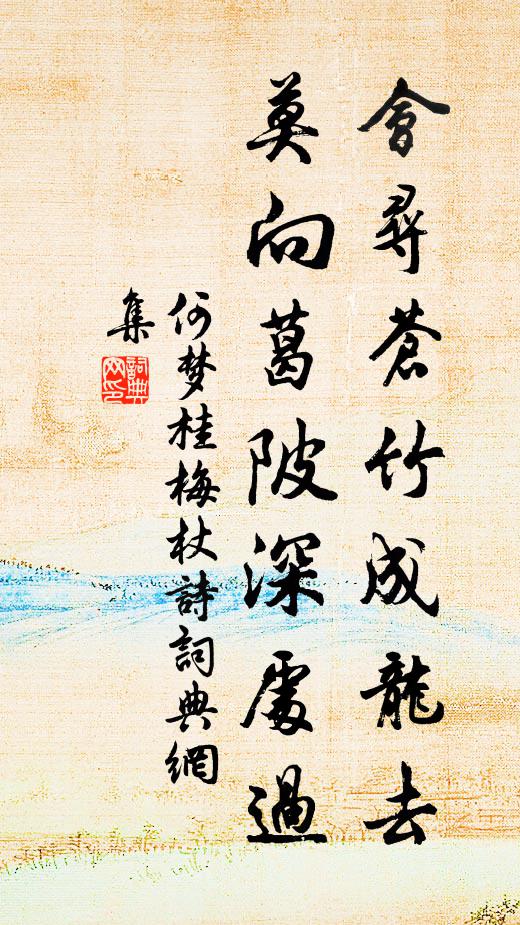 會尋蒼竹成龍去
莫向葛陂深處過
何梦桂梅杖詩詞典網
集
詞典
网印